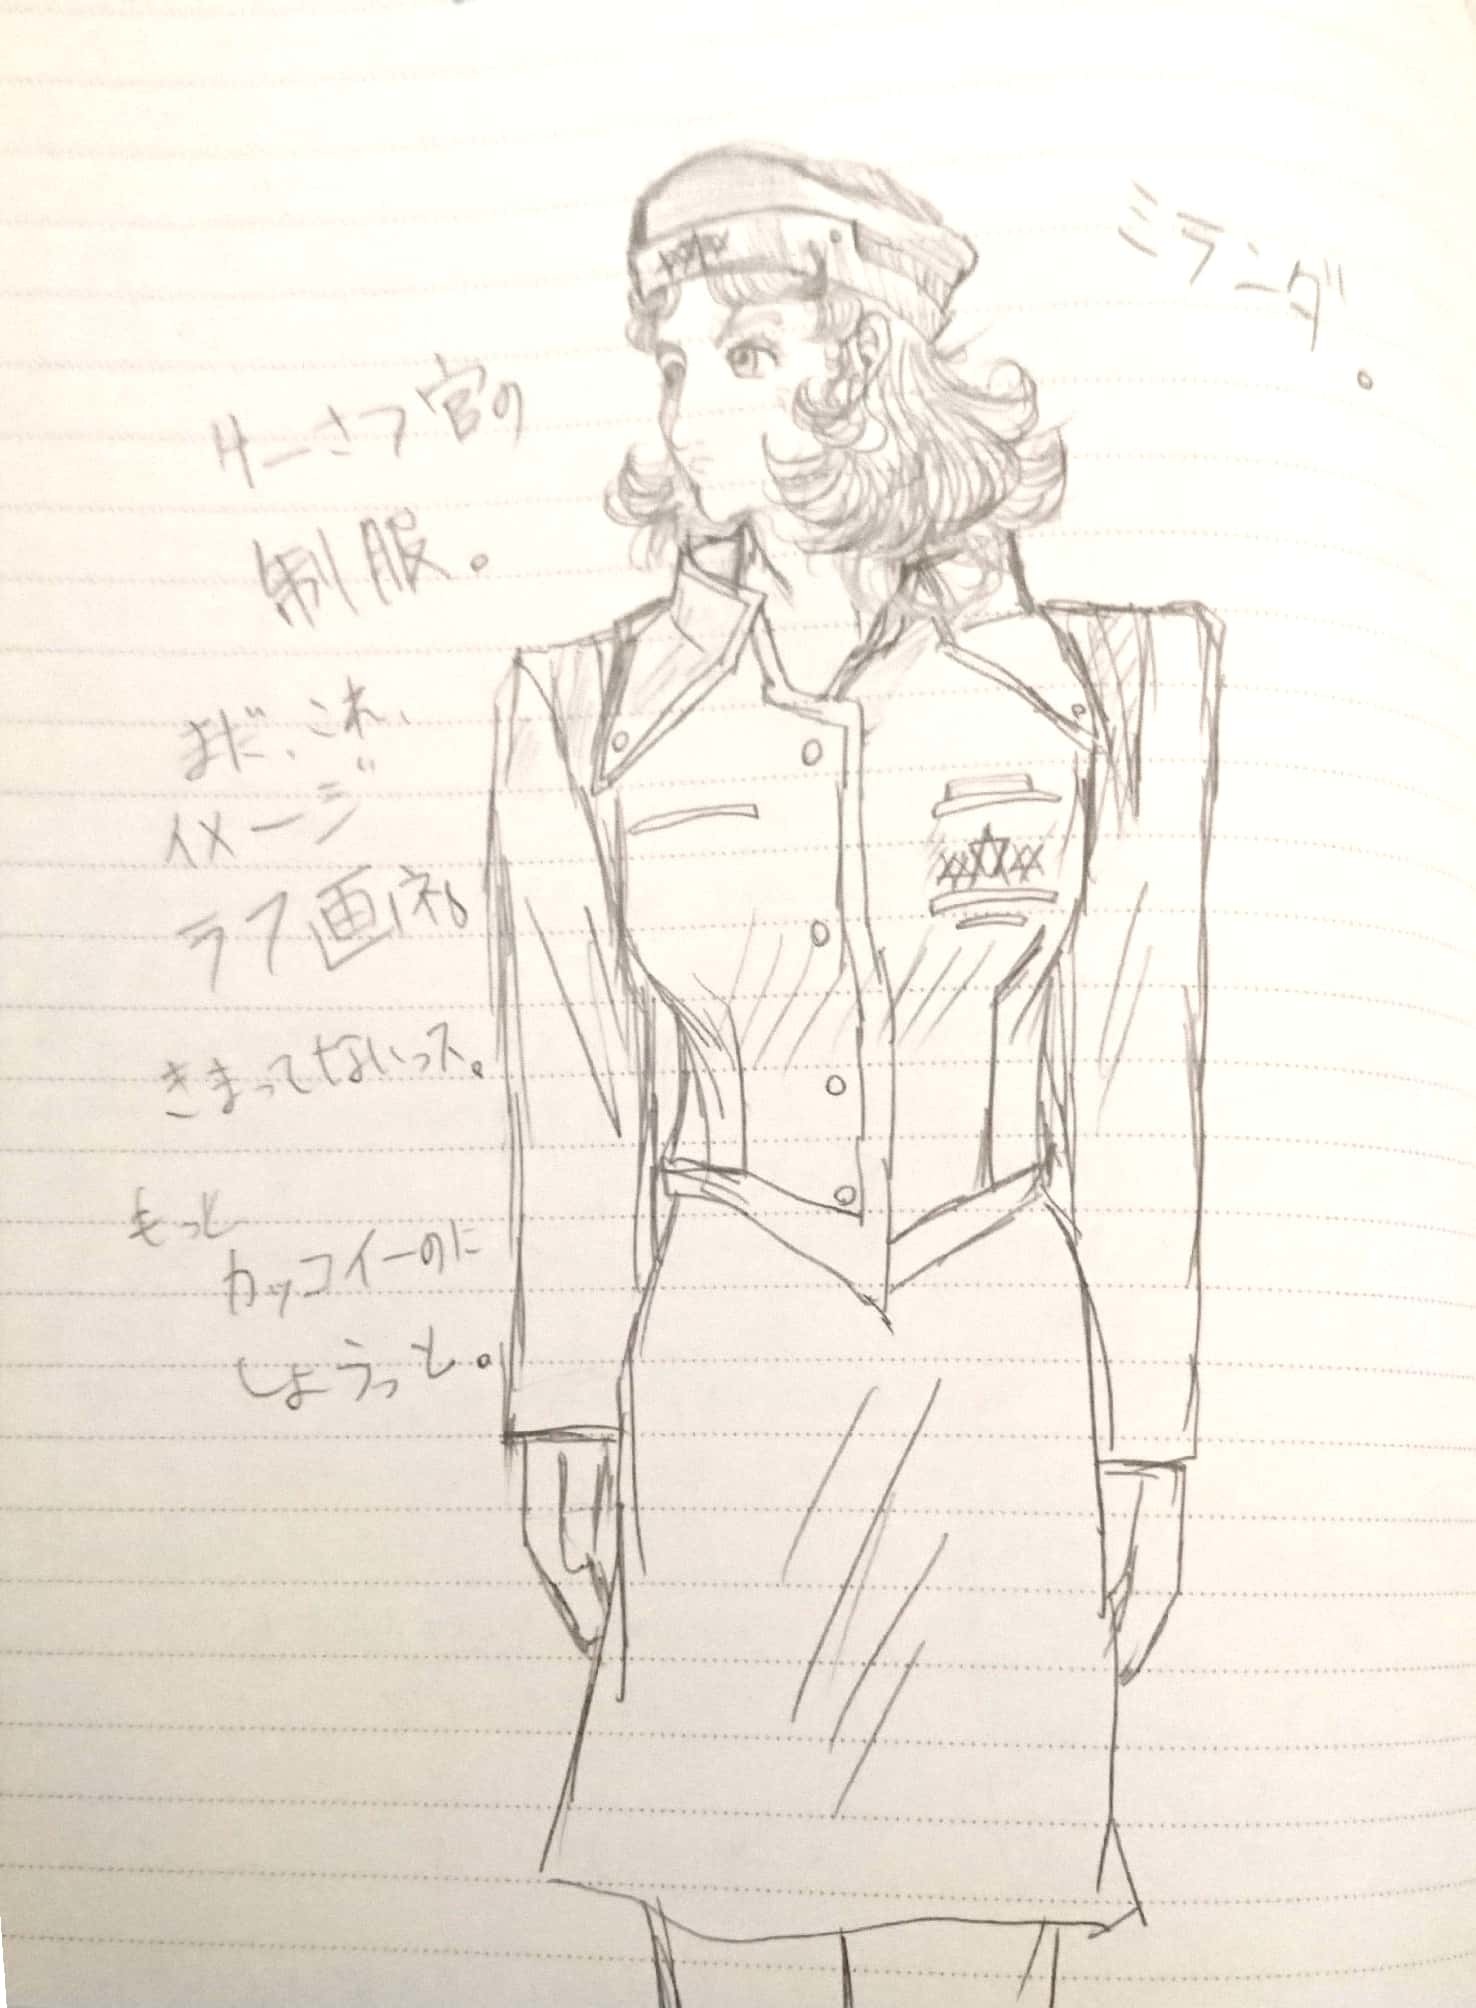 ミランダ。
けーさつ官の
制服。
まだ、これ、
イメージ
ラフ画ネ。
きまってないっス。
もっと
カッコイーのに
しようっと。